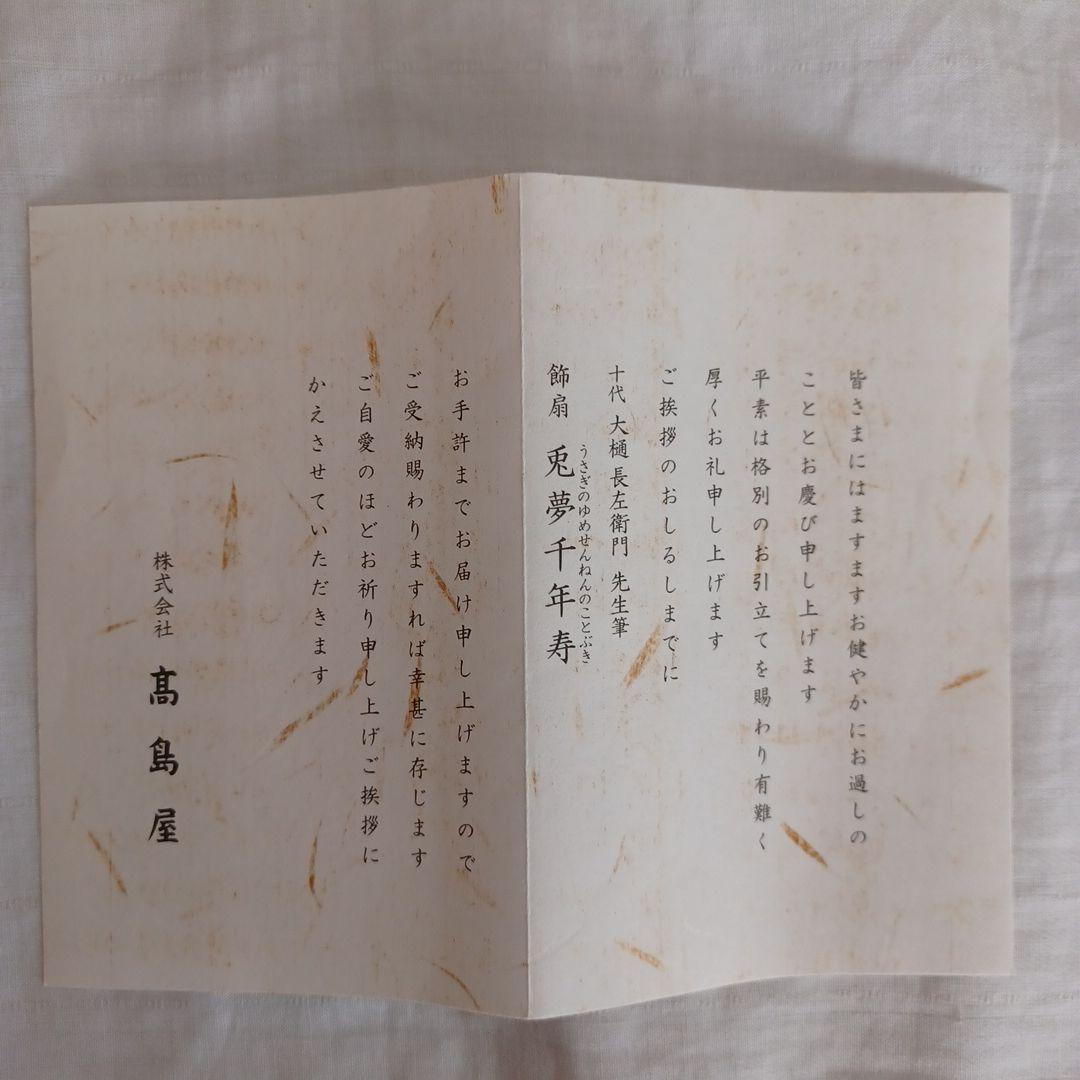 皆さまにはますますお健やかにお過しの
こととお慶び申し上げます
平素は格別のお引立てを賜わり有難く
厚くお礼申し上げます
ご挨拶のおしるしまでに
十代 大樋長左衛門 先生筆
飾扇 兎夢千年寿
うさぎのゆめせんねんのことぶき
お手許までお届け申し上げますので
ご受納賜わりますれば幸甚に存じます
ご自愛のほどお祈り申し上げご挨拶に
かえさせていただきます
株式会社 髙島屋